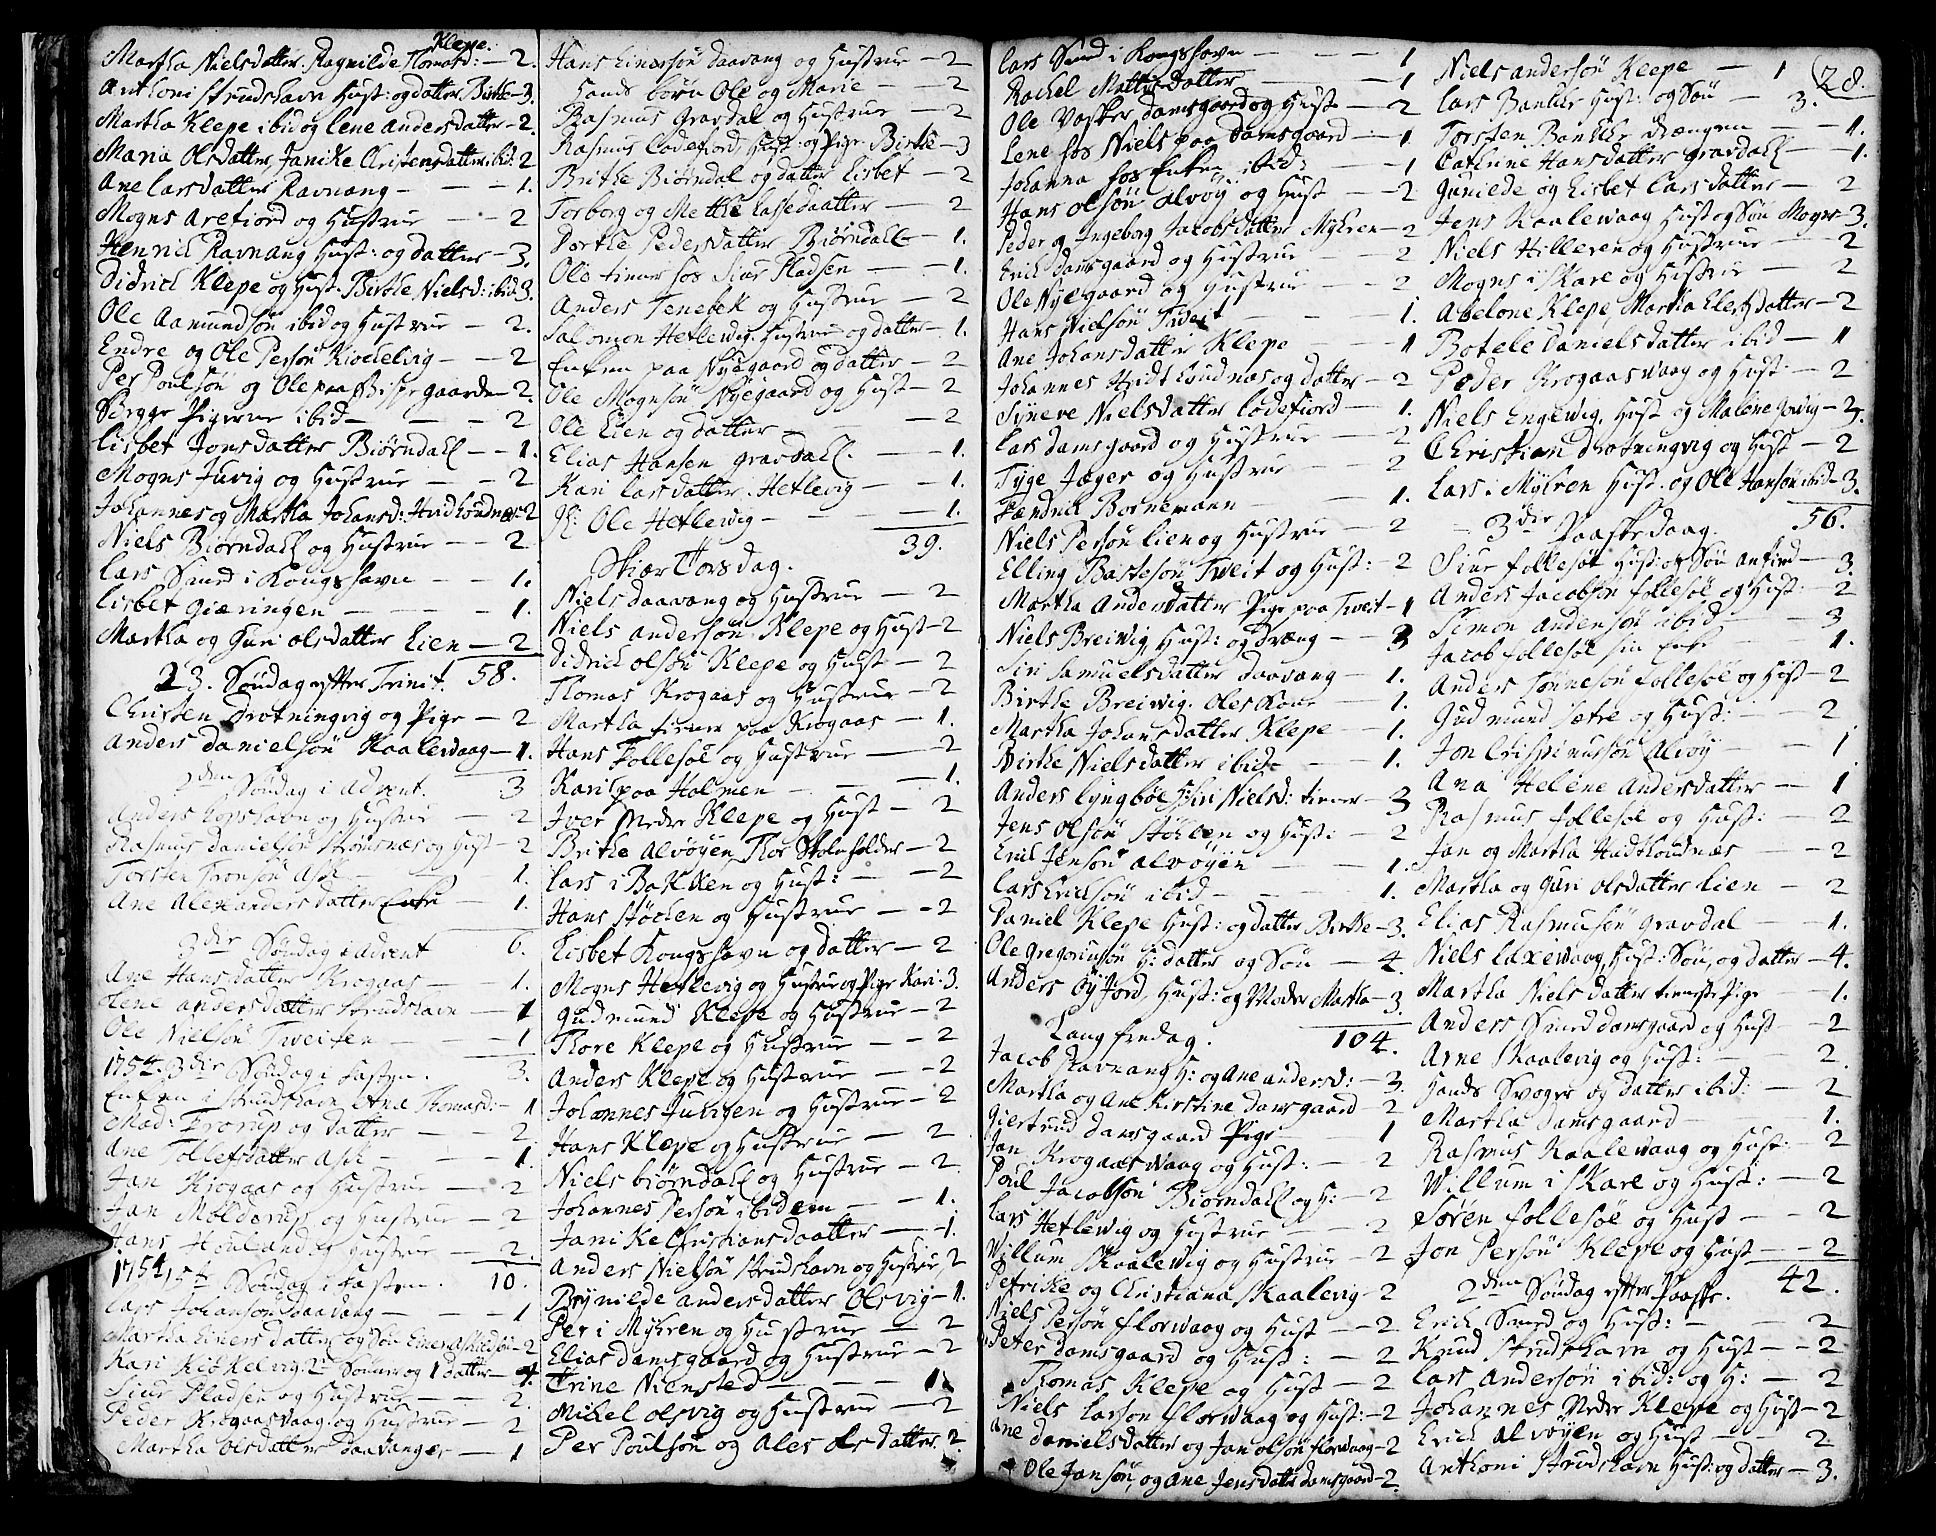 Klepe.
Martha Nielsdatter. Ragnilde Thomasd: — 2.
Anthoni Strudshavn Hust: og datter Birthe — 3.
Martha Klepe ibid og Lene Andersdatter — 2.
Maria Olsdatter, Janike Christensdatter ibid: 2
Ane Larsdatter Ravnang — — 1.
Mogns Arefiord og Hustrue — — 2
Henrich Ravnang Hust: og datter — 3.
Didrich Klepe og Hust. Birthe Nielsd: ibid 3.
Ole Aamundsøn ibid og Hustrue — 2.
Endre og Ole Persøn Kiøkkelvig — — 2
Per Poulsøn og Ole paa Bispegaarden — 2.
Pigerne ibid — — 2
Lisbet Jonsdatter Biørndall — — 1.
Mogns Juvig og Hustrue — — 2
Johannes og Martha Johansd: Hvidhoudnæs 2
Niels Biørndall og Hustrue — — 2.
Lars Smed i Kongshavn — — 1.
Lisbet Giæringen — — — 1.
Martha og Guri Olsdatter Lien — 2
23. Søndag efter Trinit. 58.
Christen Drotningvig og Pige — 2
Anders Danielsøn Kaalevaag — 1.
2den Søndag i Advent. 3
Anders Kopshavn og Hustrue — 2
Rasmus Danielsøn Stromsnæs og Hust — 2
Torsten Tronsøn Ask — 1.
Ane Alexandersdatter Enke — 1.
3die Søndag i Advent 6.
Ane Hansdatter Krogaas — — 1.
Lene Andersdatter Strudshavn — 1
Ole Nielsøn Tweiten — — 1
1754. 3die Søndag i Fasten. 3.
Enken i Strudshavn Ane Thomasd: — 1
Mad: Frorup og datter — — 2
Ane Tollefsdatter Ask — — 1.
Jan Krogaas og Hustrue — 2
Jan Molderup og Hustrue — 2
Hans Houland og Hustrue — 2.
1754 5te Søndag i Fasten. 10.
Lars Johansøn Daavang — — 1
Martha Einersdatter og Søn Einer — 2
Kari Kiøkkelvig. 2de Sønner og 1 datter — 4.
Siur Pladsen og Hustrue — — 2.
Peder Krogaasvaag og Hustrue — 2
Martha Olsdatter Daavanger — 1
Hans Einersøn Daavang og Hustrue — 2
Hands børn Ole og Marie — — 2
Rasmus Gravdal og Hustrue — 2
Rasmus Lodefiord, Hust: og Pige Birthe — 3
Brithe Biørndal og datter Lisbet — 2
Torborg og Mettle Lassedaatter — 2
Dorthe Pedersdatter Biørndall — 1.
Ole tiener hos Siur Pladsen — — 1.
Anders Tenebek og Hustrue — 2
Salomon Hetlevig. Hustrue og datter — 1.
Enken paa Nyegaard og datter — 2
Ole Mognsøn Nyegaard og Hust — 2
Ole Lien og datter — — — 2
Elias Hansen Gravdall. — — 1.
Kari Larsdatter. Hetlevig — — 1.
Ole Hetlevig — — — 1.
39.
Skiær Torsdag.
Niels Daavang og Hustrue — — 2
Niels Andersøn Klepe og Hust — 2
Didrich Olsøn Klepe og Hust — 2
Thomas Krogaas og Hustrue — 2
Martha tiener paa Krogaas — 1.
Hans Follesøe og Hustrue — — 2
Kari paa Holmen — — — 1.
Iver Nedre Klepe og Hust — 2
Brithe Alvøyen, Thor Stoleholder — 2
Lars i Bakken og Hust: — — 2
Hans Støchen og Hustrue — — 2
Lisbet Kongshavn og datter — 2
Mogns Hetlevig og Hustrue og Pige Kari: 3.
Gudmund Klepe og Hustrue — 2
Thore Klepe og Hustrue — — 2
Anders Klepe og Hustrue — — 2
Johannes Juvigen og Hustrue — 2
Hans Klepe og Hustrue — — 2
Niels Biørndall og Hustrue — 2.
Johannes Persøn ibidem — — 1.
Janike Christiansdaatter — — 1.
Anders Nielsøn Strudshavn og Hustrue 2
Brynilde Andersdatter Olsvig — 1.
Per i Myhren og Hustrue — — 2
Elias Damsgaard og Hustrue — 2
Trine Niensted — — — 1.
Mikel Olsvig og Hustrue — — 2
Per Poulsøn og Ales Olsdatter. 2
Lars Smed i Kongshavn — — — 1
Rachel Mattisdatter — — — 1
Ole Vasker Damsgaard og Hust — — 2
Lene hos Niels paa Damsgaard — — 1
Johanna hos Enken ibid: — — 1
Hans Olsøn Alvøy og Hust — — 2
Peder og Ingeborg Jacobsdatter Myhren — 2
Erich Damsgaard og Hustrue — — 2
Ole Nyegaard og Hustrue — — 2
Hans Nielsøn Tweit — — — 1.
Ane Johansdatter Klepe — — 1
Johannes Hvidhoudnæs og datter — 2
Syneve Nielsdatter Lodefiord — — 1.
Lars Damsgaard og Hustrue — — 2
Tyge Jæger og Hustrue — — 2
Hændrich Bornemann — — 1.
Niels Persøn Lien og Hustrue — 2
Elling Bastesøn Tweit og Hust: — 2
Martha Andersdatter Pige paa Tweit — 1
Niels Breivig, Hust: og dræng — — 3
Siri Samuelsdatter Daavang — — 1.
Birthe Breivig. Oles Kone — — 1.
Martha Johansdatter Klepe — — 1.
Birthe Nielsdatter ibid — — 1.
Anders Lyngbøe Siri Nielsd: tiener — 3
Jens Olsøn Støhlen og Hust: — 2
Erich Jensøn Alvøyen — — 1.
Lars Erichsøn ibid — — — 1.
Daniel Klepe Hust: og datter Birthe — 3.
Ole Gregoriusøn H: datter og Søn — 4.
Anders Øyjord, Hust: og Moder Martha — 3.
Langfredag. 104.
Jacob Ravnang H: og Ane Andersd: — 3.
Martha og Ane Kirstine Damsgaard — 2
Giertrud Damsgaard Pige — 1
Jan Krogaasvaag og Hust: — 2
Poul Jacobsøn Biørndall og H: — 2
Lars Hetlevig og Hustrue — — 2
Willum Skaalevig og Hustrue — 2
Petrike og Christiana Skaalevig — 2
Niels Persøn Florvaag og Hust — 2
Peter Damsgaard og Hust: — 2
Thomas Klepe og Hust — 2
Niels Larsøn Florvaag og Hust: — 2
Ane Danielsdatter og Jan Olsøn Florvaag — 2
Ole Jansøn, og Ane Jensdatter Damsgaard — 2.
28.
Niels Andersøn Klepe — 1
Lars Bankke Hust: og Søn — 3.
Torsten Bankke drængen — — 1.
Cathrine Hansdatter Gravdall — — 1.
Gunilde og Lisbet Larsdatter — 2
Jens Kaalevaag Hust og Søn Mogns — 3.
Niels Hilleren og Hustrue — — 2
Mogns i Skare og Hustrue — — 2
Abelone Klepe, Martha Elefsdatter — 2
Botele Danielsdatter ibid — 1
Peder Krogaasvaag og Hust — 2
Niels Engevig, Hust og Malene Juvig — 3.
Christian Drotningvig og Hust — 2
Lars i Myhren Hust. og Ole Hansøn ibid — 3.
3die Paaskedaag. 56.
Siur Follesøe Hust: og Søn Anfind — 3.
Anders Jacobsøn Follesøe og Hust: — 2
Simon Andersøn ibid — — 3
Jacob Follesøe sin Enke 1.
Anders Tønnesøn Follesøe og Hust — 2
Gudmund Sætre og Hust: — 2
Jon Crispinusøn Alvøy — — 1
Ana Helene Andersdatter — — 1
Rasmus Follesøe og Hust: — 2
Jan og Martha Hvidhoudnæs — — 2
Martha og Guri Olsdatter Lien — 2
Elias Rasmusøn Gravdal — 1.
Niels Laxevaag, Hust: Søn, og datter — 4.
Martha Nielsdatter tieneste Pige — 1.
Anders Smed Damsgaard og Hust — 2
Arne Skaalevig og Hust: — — 2
Hands Svoger og datter ibid: — 2
Martha Damsgaard — — 1.
Rasmus Kaalevaag og Hust: — 2
Willum i Skare og Hust: — 2
Søren Follesøe og Hust — — 2
Jon Persøn Klepe og Hust — — 2
2den Søndag efter Paaske. 42.
Erich Smed og Hust: — — 2
Knud Strudshavn og Hust — — 2
Lars Andersøn ibid: og H: — 2
Johannes Nedre Klepe og Hust — 2
Erich Alvøyen og Hust — — 2
Anthoni Strudshavn Hust: og datter — 3.